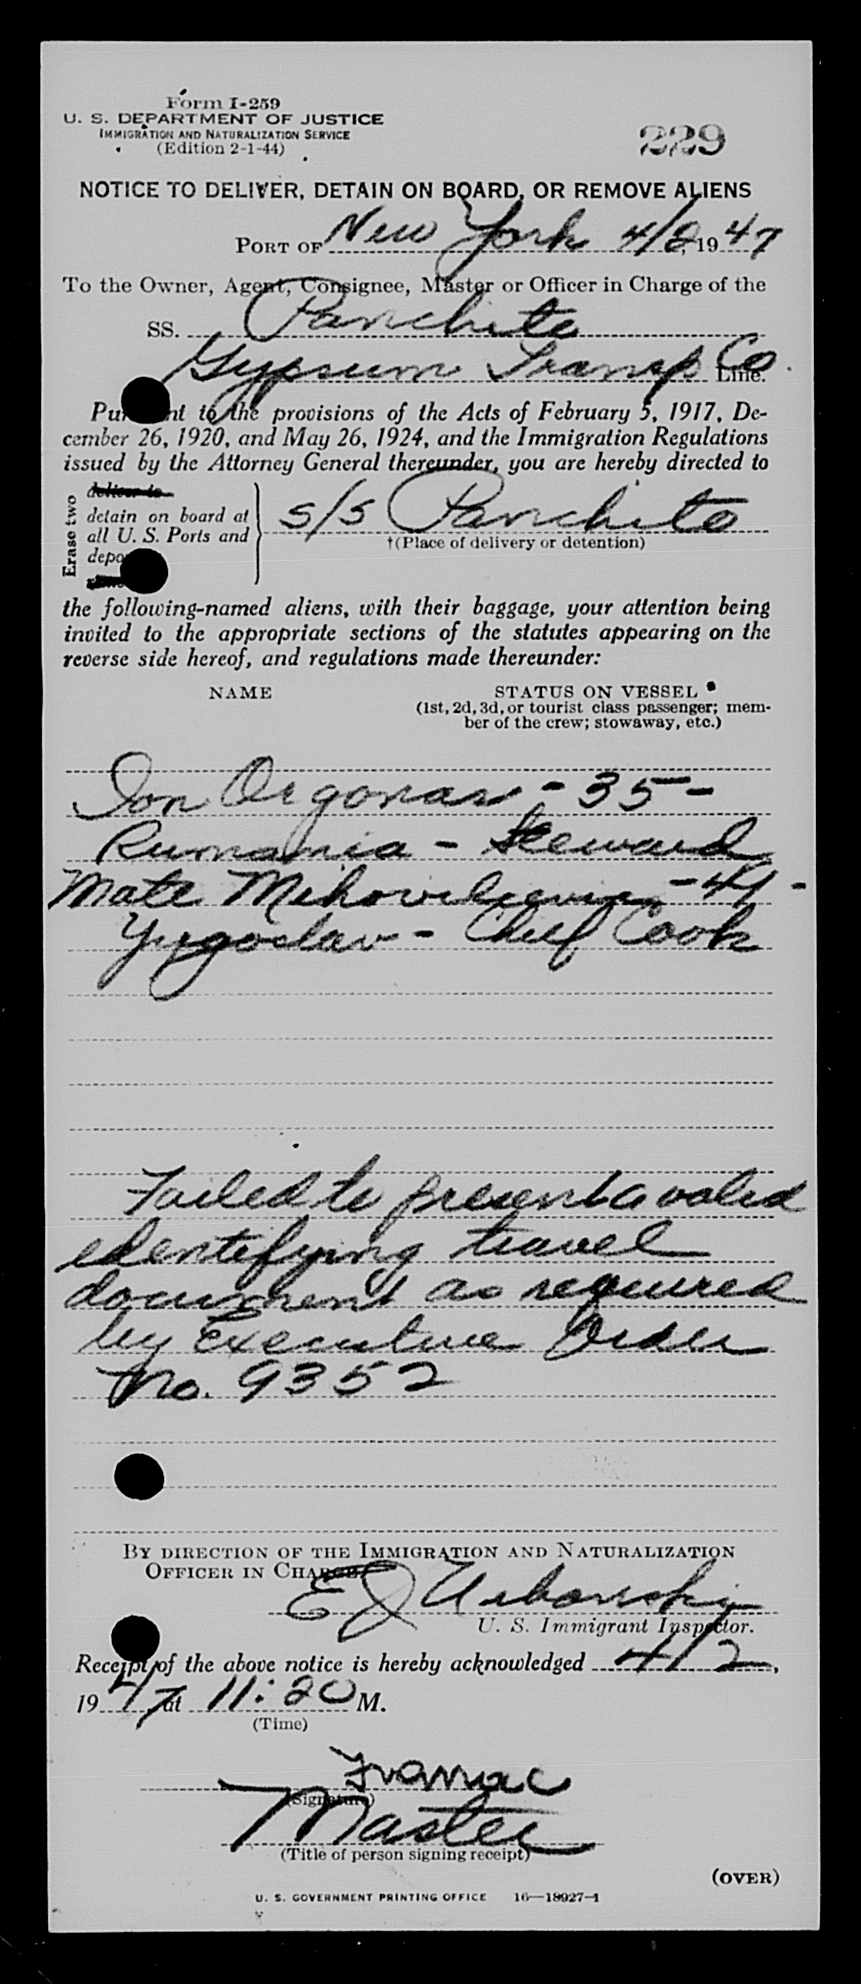 Form I-259
U. S. DEPARTMENT OF JUSTICE
IMMIGRATION AND NATURALIZATION SERVICE
(Edition 2-1-44)
229
NOTICE TO DELIVER, DETAIN ON BOARD, OR REMOVE ALIENS
PORT OF New York 4/2, 1947
To the Owner, Agent, Consignee, Master or Officer in Charge of the
SS. Panchito
Gypsum Transp Co. Line.
Pu nt to the provisions of the Acts of February 5, 1917, De-
cember 26, 1920, and May 26, 1924, and the Immigration Regulations
issued by the Attorney General thereunder, you are hereby directed to
Erase two
deliver to
detain on board at
all U. S. Ports and
depo
s/s Panchito
†(Place of delivery or detention)
the following-named aliens, with their baggage, your attention being
invited to the appropriate sections of the statutes appearing on the
reverse side hereof, and regulations made thereunder:
NAME
STATUS ON VESSEL
(1st, 2d, 3d, or tourist class passenger; mem-
ber of the crew; stowaway, etc.)
Ion - 35 -
Rumania - Steward
Mate - 41 -
Yugoslav - Chief Cook
Failed to present a valid
identifying travel
document as required
by Executive Order
No. 9352
BY DIRECTION OF THE IMMIGRATION AND NATURALIZATION
OFFICER IN CHARGE
E J Urbanski
U. S. Immigrant Inspector.
Receipt of the above notice is hereby acknowledged 4/2,
1947 at 11:20 M.
(Time)
(Signature)
Master
(Title of person signing receipt)
(OVER)
U. S. GOVERNMENT PRINTING OFFICE 16—18927-1